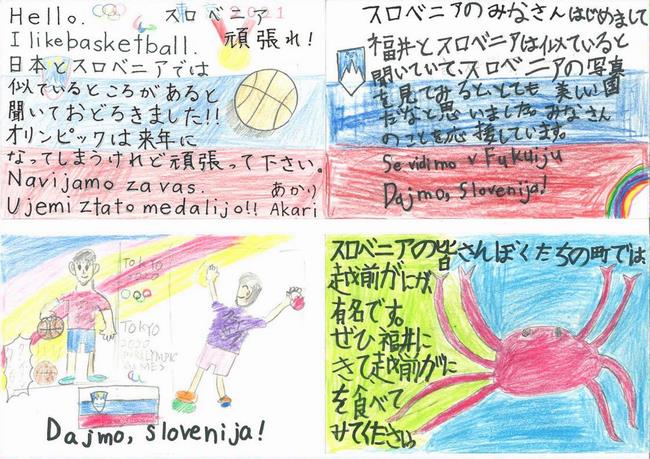 Hello. スロベニア
2021
I like basketball. 頑張れ!
日本とスロベニアでは
似ているところがあると
聞いておどろきました!!
オリンピックは来年に
なってしまうけれど頑張って下さい。
Navijamo za vas. あかり
Ujemi ztato medalijo!! Akari
スロベニアのみなさんはじめまして
福井とスロベニアは似ていると
聞いていて、スロベニアの写真
を見てみると、とても美しい国
だなと思いました。みなさん
のことを応援しています。
Se vidimo v Fukuiju
Dajmo, Slovenija!
TOKYO
2020
TOKYO
2020
PARALYMPIC
GAMES
Dajmo, Slovenija!
スロベニアの皆さんぼくたちの町では
越前がにが
有名です。
ぜひ福井に
きて越前がに
を食べて
みてください。